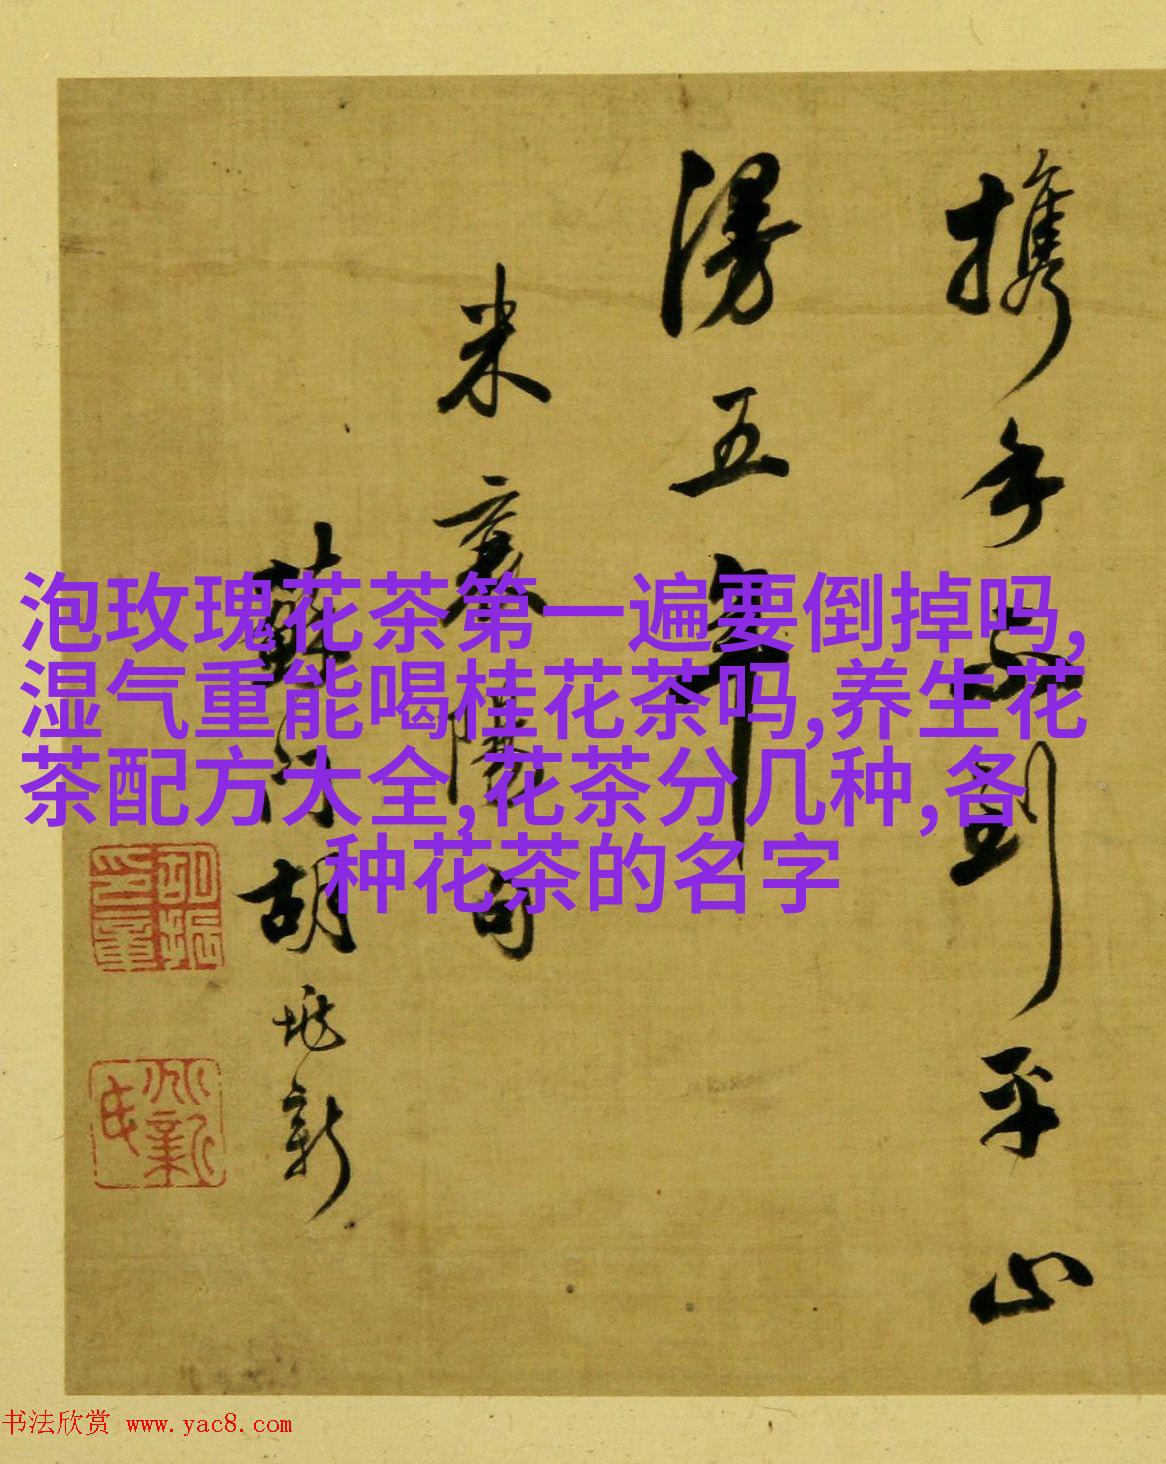 泡玫瑰花茶第一遍要倒掉吗,
湿气重能喝桂花茶吗,养生花
茶配方大全,花茶分几种,各
种花茶的名字
携手不到平山
漫五年
米襄陽句
蘇門胡垗新
书法欣赏 www.yac8.com